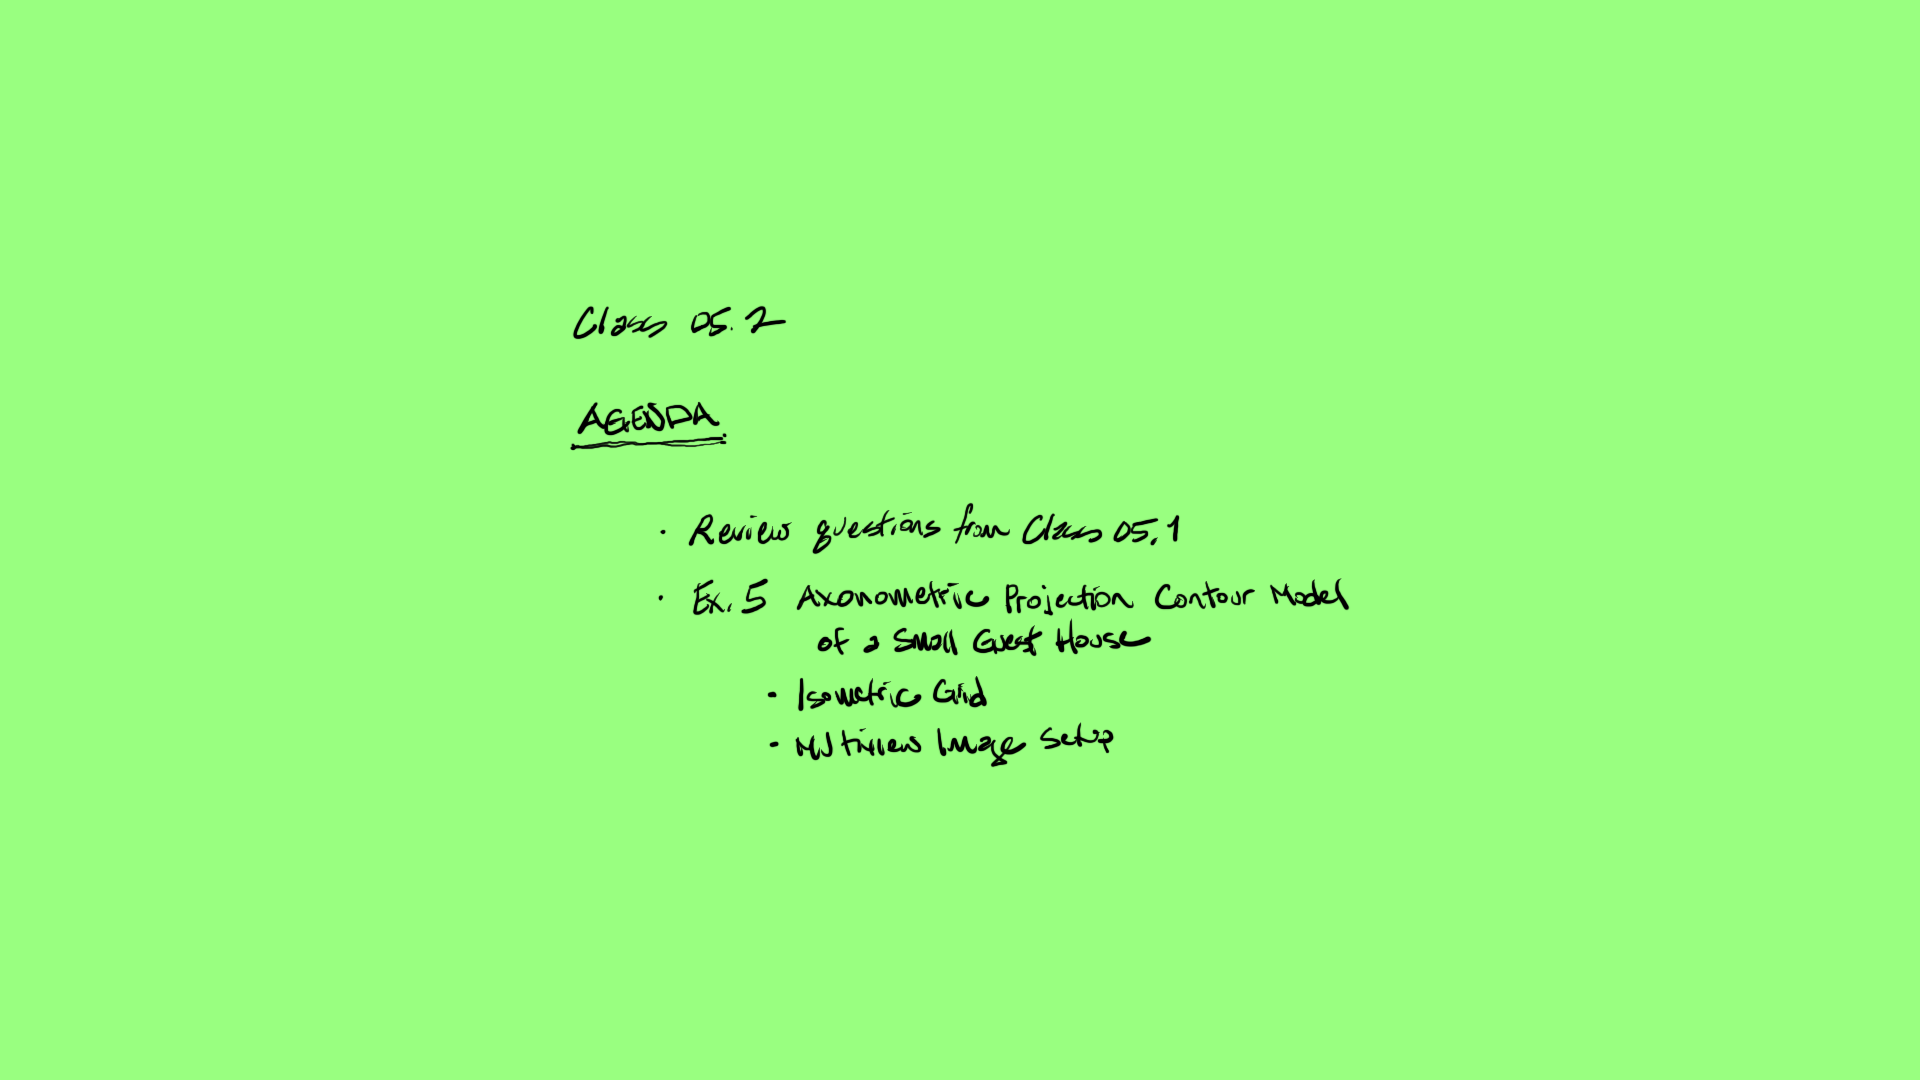 Class 05.2
AGENDA
· Review questions from Class 05.1
· Ex. 5 Axonometric Projection Contour Model
of a Small Guest House
· Isometric Grid
· Multiview Image Setup